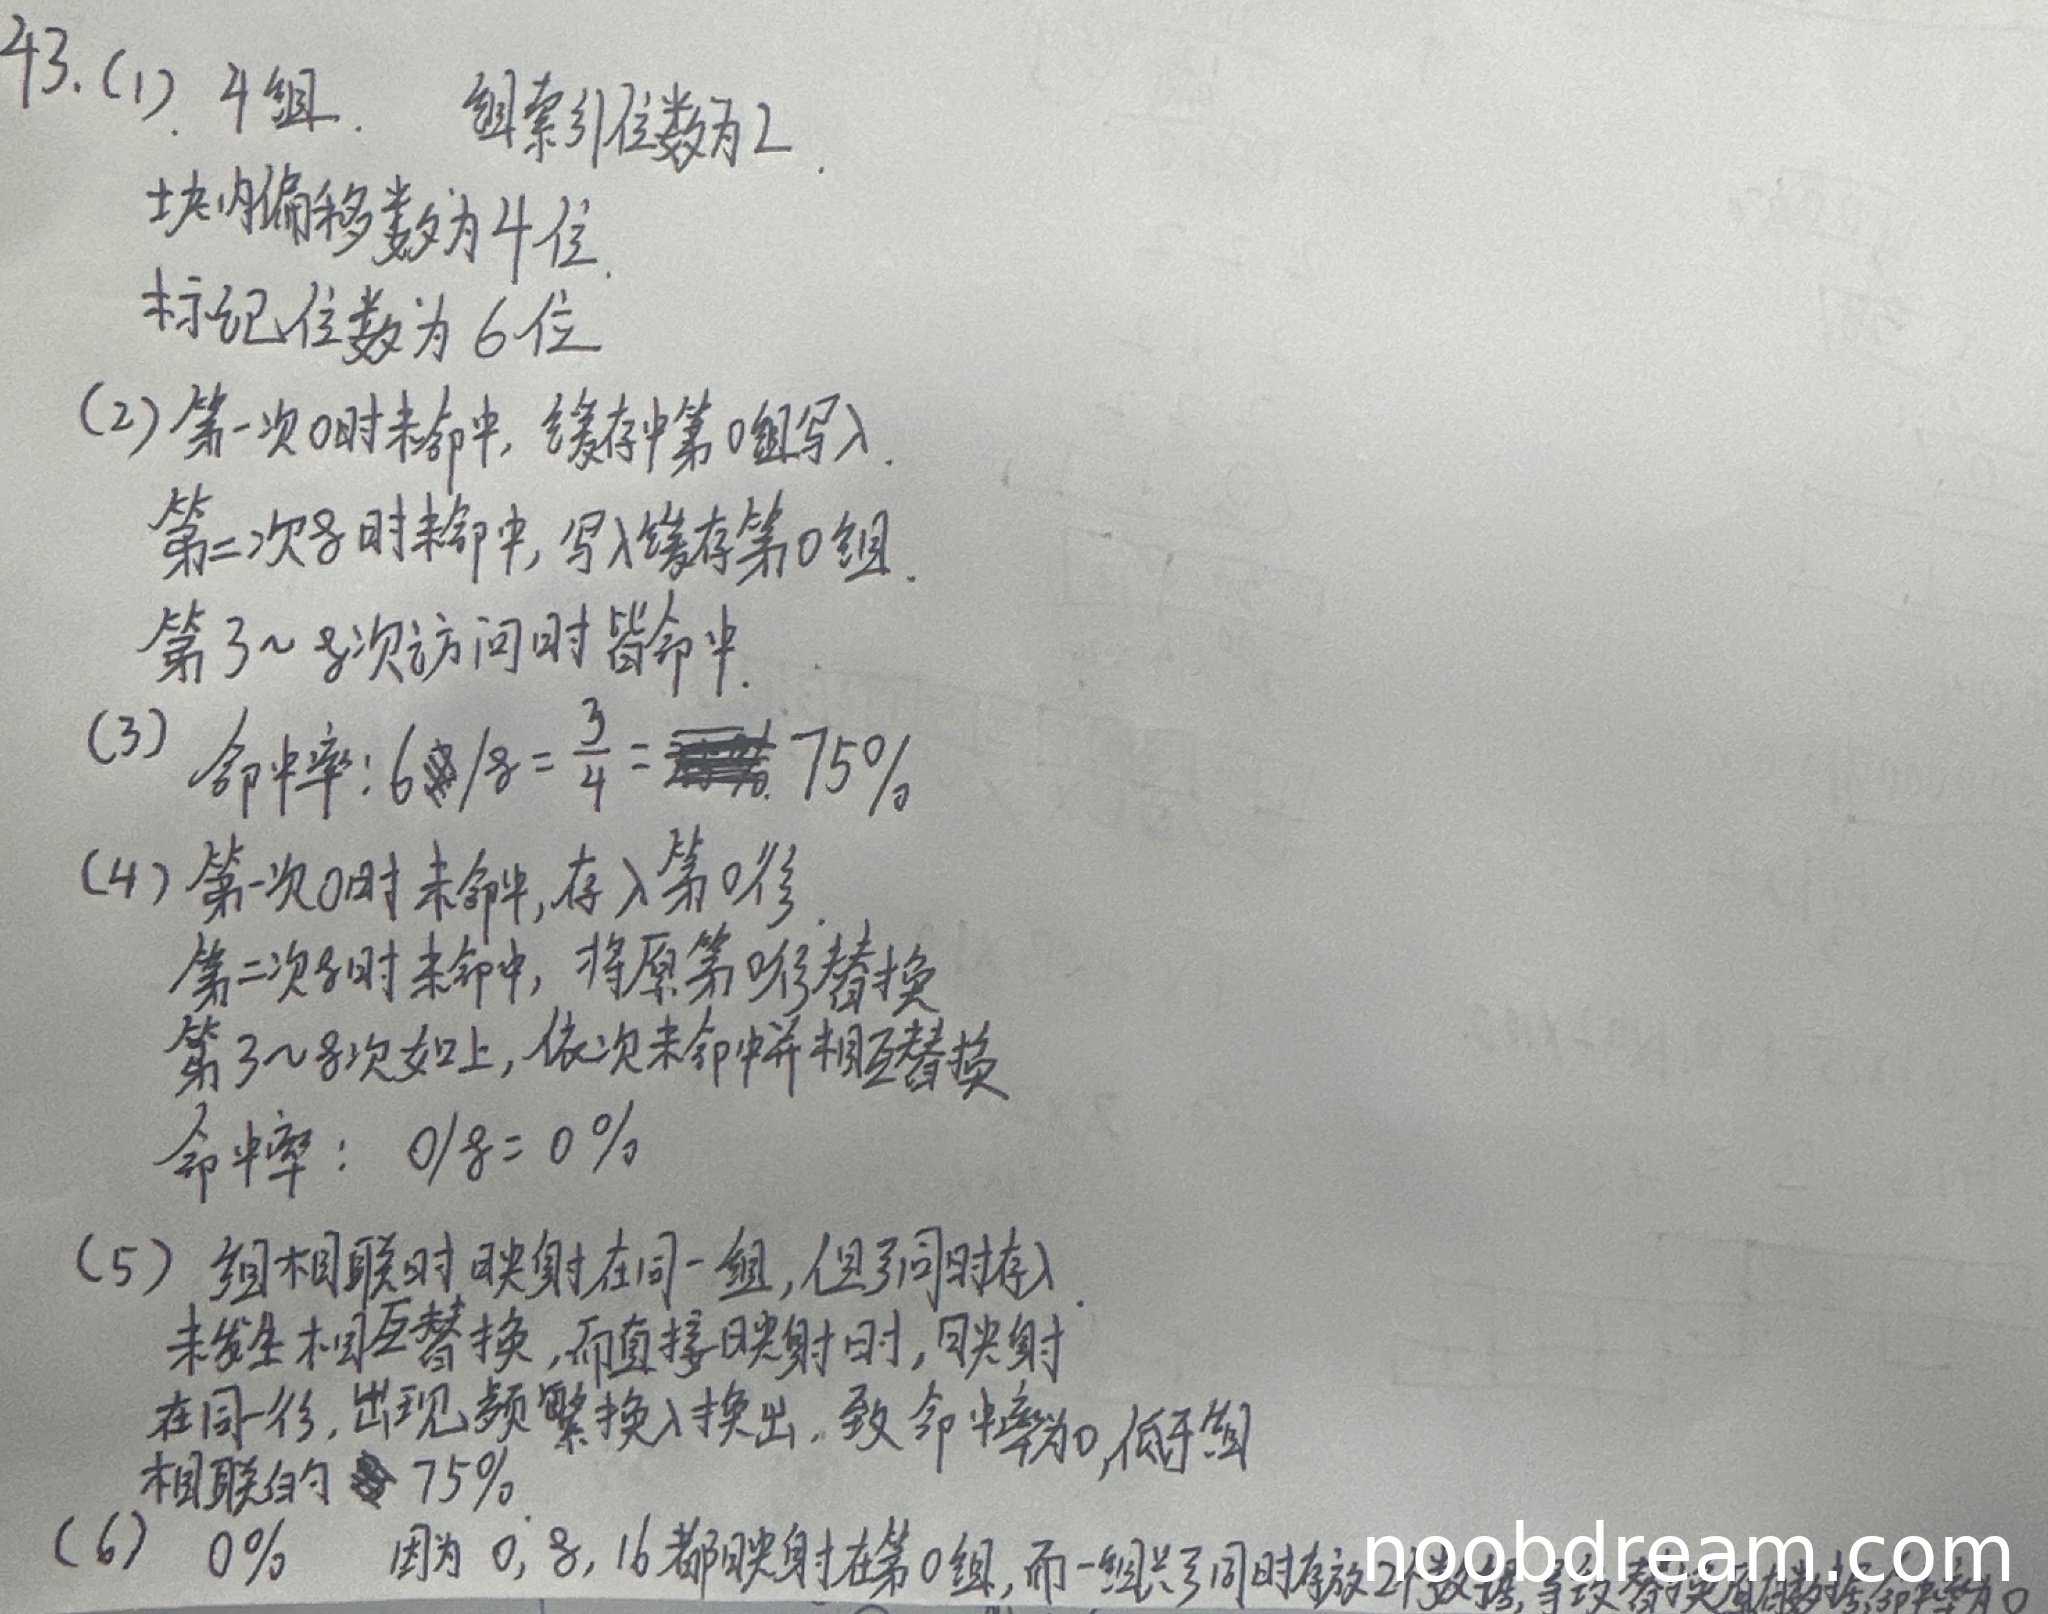 43.(1). 4组. 组索引位数为2.
块内偏移数为4位.
标记位数为6位
(2)第一次0时未命中, 缓存中第0组写入.
第二次8时未命中, 写入缓存第0组.
第3~8次访问时皆命中.
(3) 命中率: 6/8 = 3/4 = 75%
(4)第一次0时未命中,存入第0行.
第二次8时未命中, 将原第0行替换
第3~8次如上, 依次未命中并相互替换
命中率: 0/8 = 0%
(5) 组相联时映射在同一组, 但可同时存入.
未发生相互替换, 而直接映射时, 映射
在同一行, 出现频繁换入换出, 致命中率为0, 低于组
相联的 75%.
(6) 0% 因为 0, 8, 16都映射在第0组, 而一组只可同时存放2个数据, 导致替换原有数据,命中率为0
noobdream.com